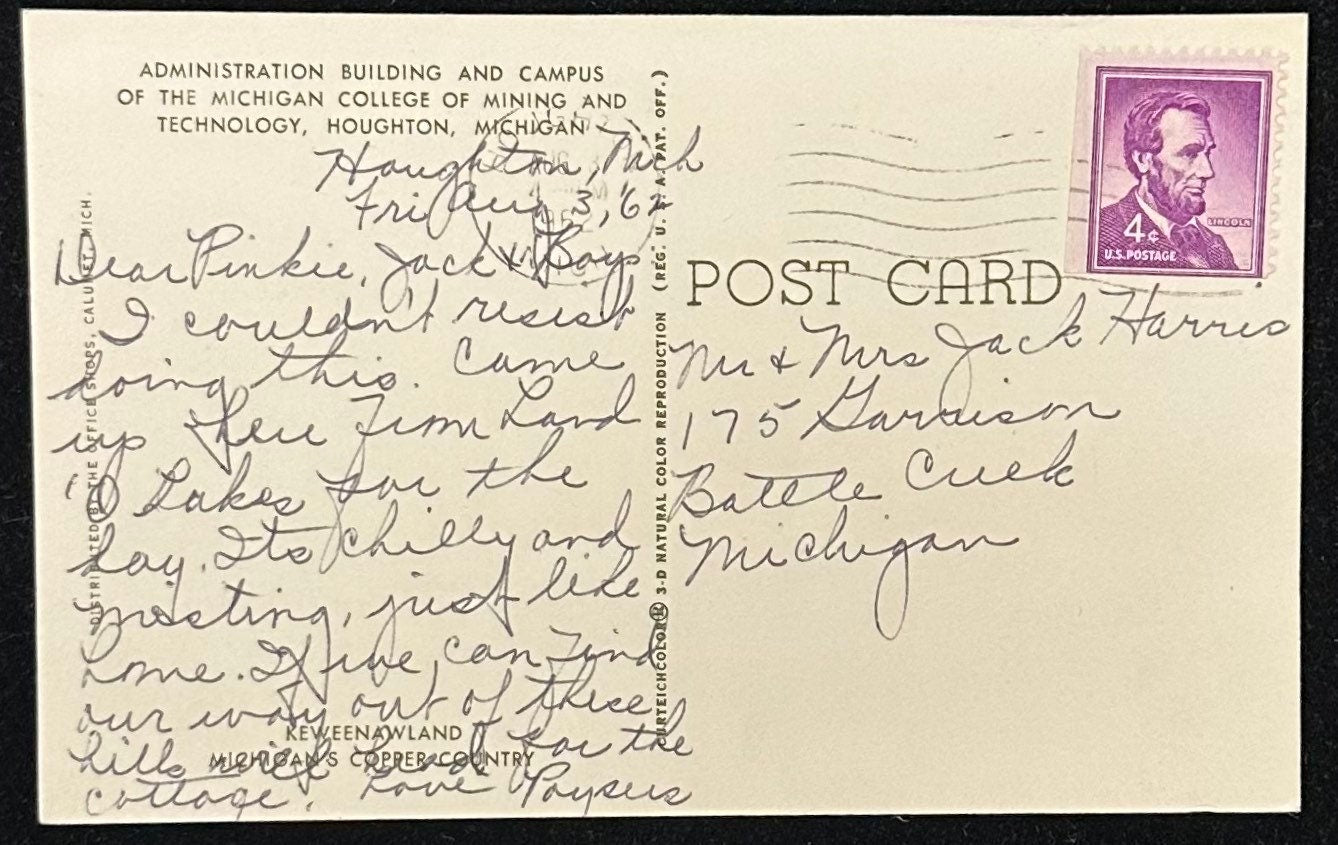 ADMINISTRATION BUILDING AND CAMPUS
OF THE MICHIGAN COLLEGE OF MINING AND
TECHNOLOGY, HOUGHTON, MICHIGAN
Houghton, Mich
Fri Aug 3, '62
Dear Pinkie, Jack & Boys
I couldn't resist
doing this. Came
up here from Land
'O Lakes for the
day. Its chilly and
misting, just like
home. If we can find
our way out of these
hills will head for the
cottage. Love Paysers
KEWEENAWLAND
MICHIGAN'S COPPER COUNTRY
DISTRIBUTED BY THE OFFICE SHOPS, CALUMET, MICH.
CURTEICHCOLOR® 3-D NATURAL COLOR REPRODUCTION (REG. U. S. A. PAT. OFF.)
POST CARD
Mr & Mrs Jack Harris
175 Garrison
Battle Creek
Michigan
LINCOLN
4¢
U.S. POSTAGE